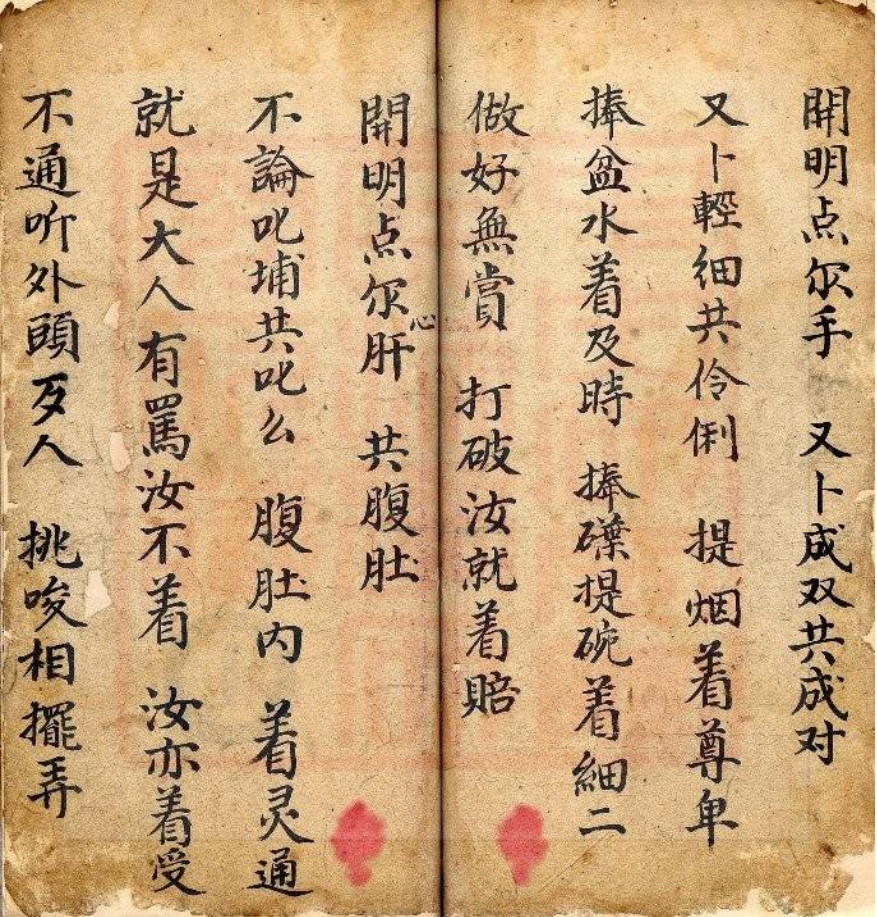 開明点尔手　又卜成双共成对
又卜輕细共伶俐　提烟着尊卑
捧盆水着及時　捧磜提碗着細二
做好無賞　打破汝就着賠
開明点尔肝心　共腹肚
不論叱埔共叱么　腹肚内　着灵通
就是大人有罵汝不着　汝亦着受
不通听外頭歹人　挑唆相擺弄